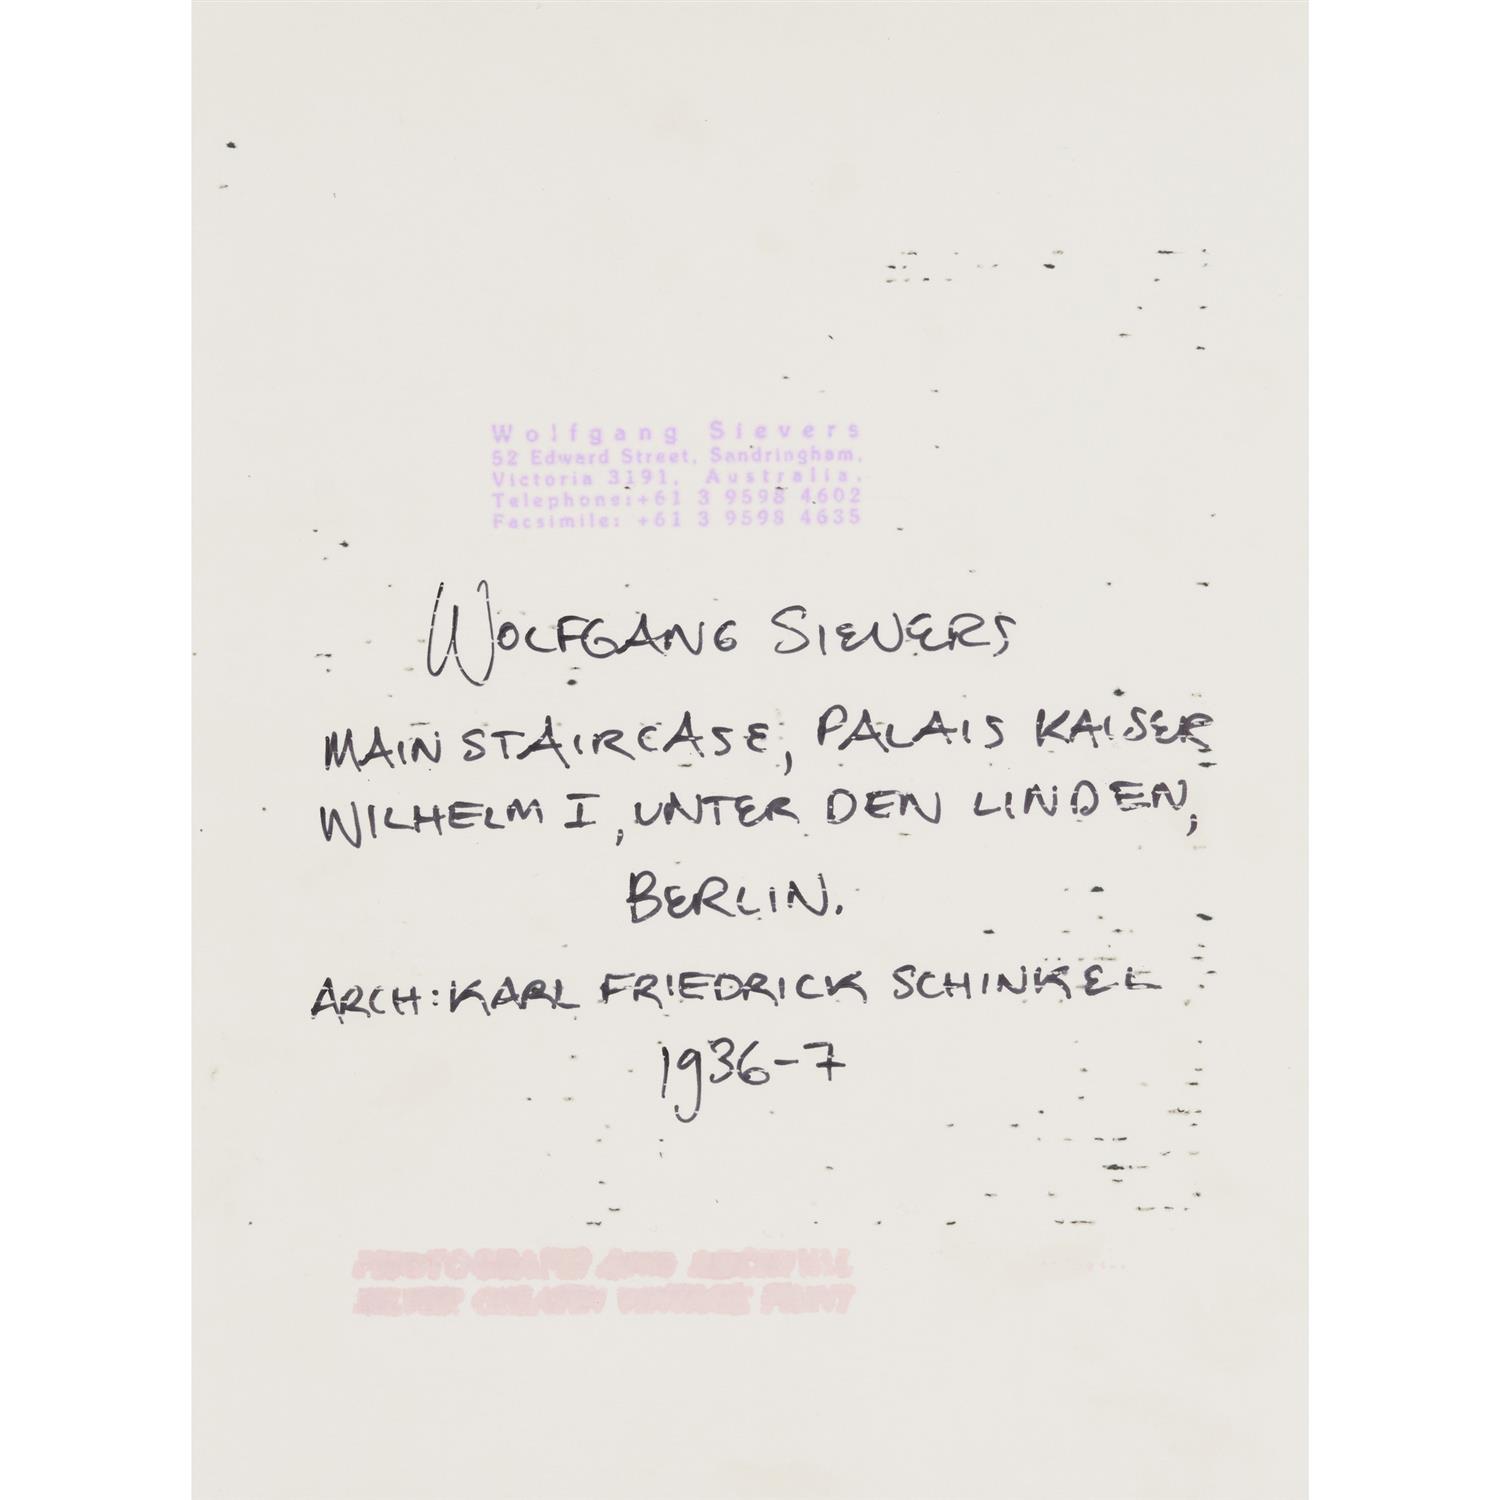 Wolfgang Sievers
52 Edward Street, Sandringham,
Victoria 3191, Australia.
Telephone:+61 3 9598 4602
Facsimile: +61 3 9598 4635
WOLFGANG SIEVERS
MAIN STAIRCASE, PALAIS KAISER
WILHELM I, UNTER DEN LINDEN,
BERLIN.
ARCH: KARL FRIEDRICK SCHINKEL
1936-7
PHOTOGRAPH AND ARCHIVAL
SILVER GELATIN VINTAGE PRINT